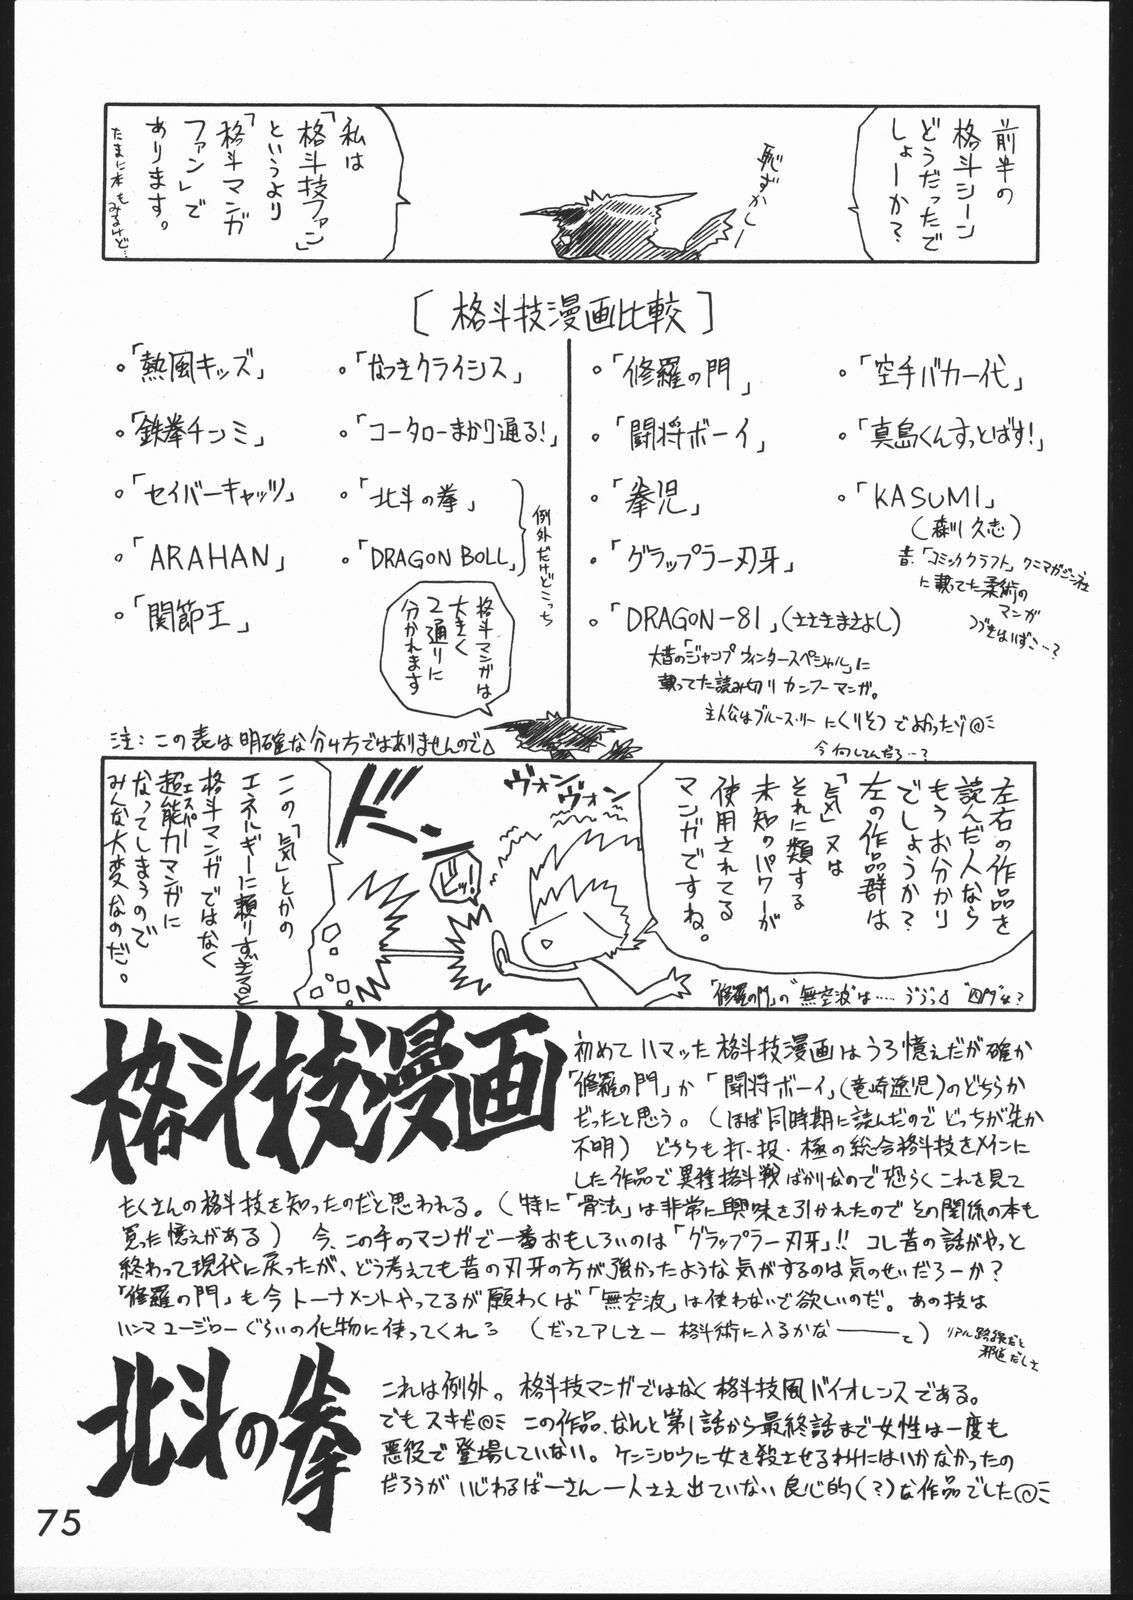 前半の
格斗シーン
どうだったで
しょーか?
恥ずかしー
私は
「格斗技ファン」
というより
「格斗マンガ
ファン」で
あります。
たまに本もみるけど…
[格斗技漫画比較]
・「熱風キッズ」
・「鉄拳チンミ」
・「セイバーキャッツ」
・「ARAHAN」
・「関節王」
・「なつきクライシス」
・「コータローまかり通る!」
・「北斗の拳」
・「DRAGON BOLL」
例外だけどこっち
格斗マンガは
大きく
2通りに
分かれます
・「修羅の門」
・「闘将ボーイ」
・「拳児」
・「グラップラー刃牙」
・「DRAGON-81」(ささきまさよし)
大昔の「ジャンプ ウィンタースペシャル」に
載ってた読み切りカンフーマンガ。
主人公はブルース・リーにくりそつでよかったゾ@ミ
今何してんだろ…?
・「空手バカ一代」
・「真島くんすっとばす!」
・「KASUMI」
(森川久志)
昔、「コミッククラフト」クニマガジン社
に載ってた柔術の
マンガ
つづきはいずこ…?
注:この表は明確な分け方ではありませんので
左右の作品を
読んだ人なら
もうお分かり
でしょうか?
左の作品群は
「気」又は
それに類する
未知のパワーが
使用されてる
マンガですね。
「修羅の門」の"無空波"は……
ヴォン
ヴォン
ビッ!
ドン
この「気」とかの
エネルギーに頼りすぎると
格斗マンガではなく
超能力マンガに
エスパー
なってしまうので
みんな大変なのだ。
格斗技漫画
初めてハマッた格斗技漫画はうろ憶えだが確か
「修羅の門」か「闘将ボーイ」(竜崎遼児)のどちらか
だったと思う。(ほぼ同時期に読んだのでどっちが先か
不明)どちらも打・投・極の総合格斗技をメインに
した作品で異種格斗戦ばかりなので恐らくこれを見て
たくさんの格斗技を知ったのだと思われる。(特に「骨法」は非常に興味を引かれたのでその関係の本も
買った憶えがある)今、この手のマンガで一番おもしろいのは「グラップラー刃牙」!!コレ昔の話がやっと
終わって現代に戻ったが、どう考えても昔の刃牙の方が強かったような気がするのは気のせいだろーか?
「修羅の門」も今トーナメントやってるが願わくば「無空波」は使わないで欲しいのだ。あの技は
ハンマユージローぐらいの化物に使ってくれろ (だってアレさー格斗術に入るかなーーーと)
リアル路線だと
邪道だしさ
北斗の拳
これは例外。格斗技マンガではなく格斗技風バイオレンスである。
でもスキだ@ミ この作品、なんと第1話から最終話まで女性は一度も
悪役で登場していない。ケンシロウに女を殺させるわけにはいかなかったの
だろうがいじわるばーさん一人さえ出ていない良心的(?)な作品でした@ミ
75